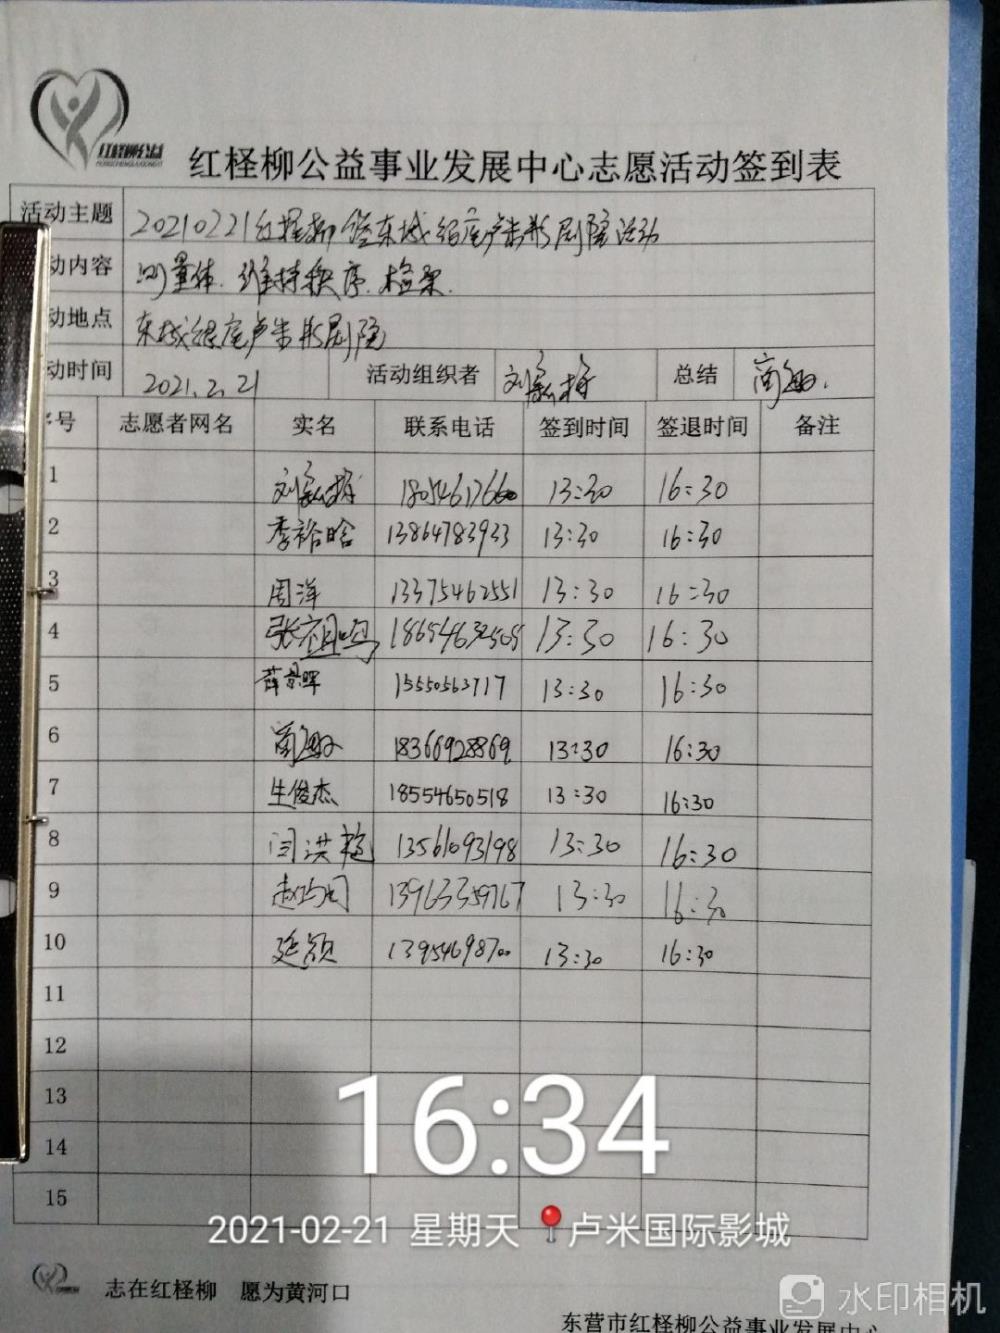 红柽柳公益
红柽柳公益事业发展中心志愿活动签到表
活动主题 20210221红柽柳 东城 卢米影剧院活动
动内容 测量体 维持秩序
动地点 东城 卢米影剧院
动时间 2021.2.21 活动组织者 总结 商敏
序号 志愿者网名 实名 联系电话 签到时间 签退时间 备注
1 13:30 16:30
2 李裕晗 13864783933 13:30 16:30
3 周洋 13375462551 13:30 16:30
4 张祖鸣 13:30 16:30
5 15550563717 13:30 16:30
6 商敏 18366928869 13:30 16:30
7 生俊杰 18554650518 13:30 16:30
8 闫洪 13561093198 13:30 16:30
9 13963359767 13:30 16:30
10 延颖 13954698700 13:30 16:30
11
12
13
14
15
16:34
2021-02-21 星期天 卢米国际影城
志在红柽柳 愿为黄河口
水印相机
东营市红柽柳公益事业发展中心